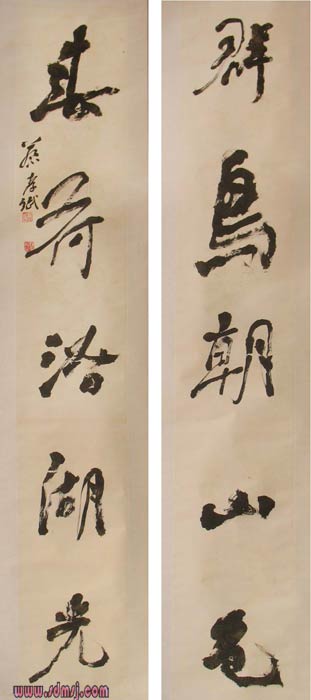 群鳥朝山色
春荷浴湖光
蔡孝斌
www.sdmsj.com